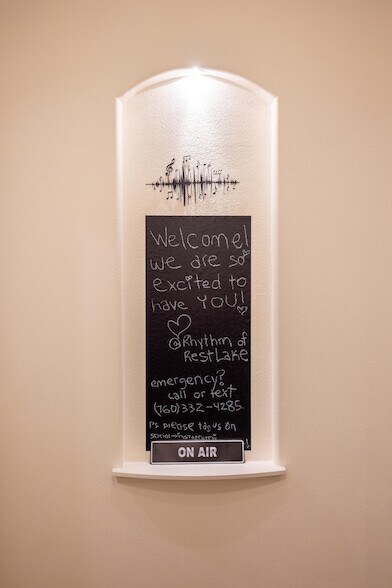 Welcome!
we are so
excited to
have YOU!
@Rhythm of
Rest Lake
emergency?
call or text
(760)332-4285
Ps please tag us on
social → instagram
ON AIR